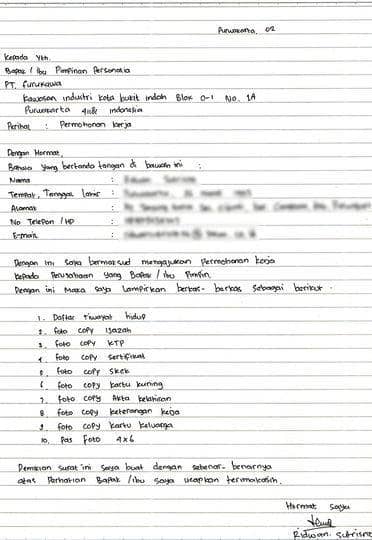 Purwakarta, 02
Kepada Yth.
Bapak / Ibu Pimpinan Personalia
PT. Furukawa
Kawasan Industri Kota Bukit Indah Blok D-1 No. 1A
Purwakarta 4118 Indonesia
Perihal : Permohonan Kerja
Dengan Hormat,
Bahwa yang bertanda tangan di bawah ini :
Nama :
Tempat, Tanggal Lahir :
Alamat :
No Telepon / HP :
E-mail :
Dengan ini saya bermaksud mengajukan Permohonan kerja
kepada Perusahaan yang Bapak / ibu Pimpin.
Dengan ini Maka saya lampirkan berkas-berkas sebagai berikut.
1. Daftar riwayat hidup
2. Foto copy ijazah
3. Foto copy KTP
4. Foto copy sertifikat
5. Foto copy SKCK
6. Foto copy kartu kuning
7. Foto copy Akta kelahiran
8. Foto copy keterangan kerja
9. Foto copy kartu keluarga
10. Pas Foto 4x6
Demikian surat ini saya buat dengan sebenar-benarnya
atas Perhatian Bapak /ibu saya ucapkan terimakasih.
Hormat Saya
Ridwan Sutrisno